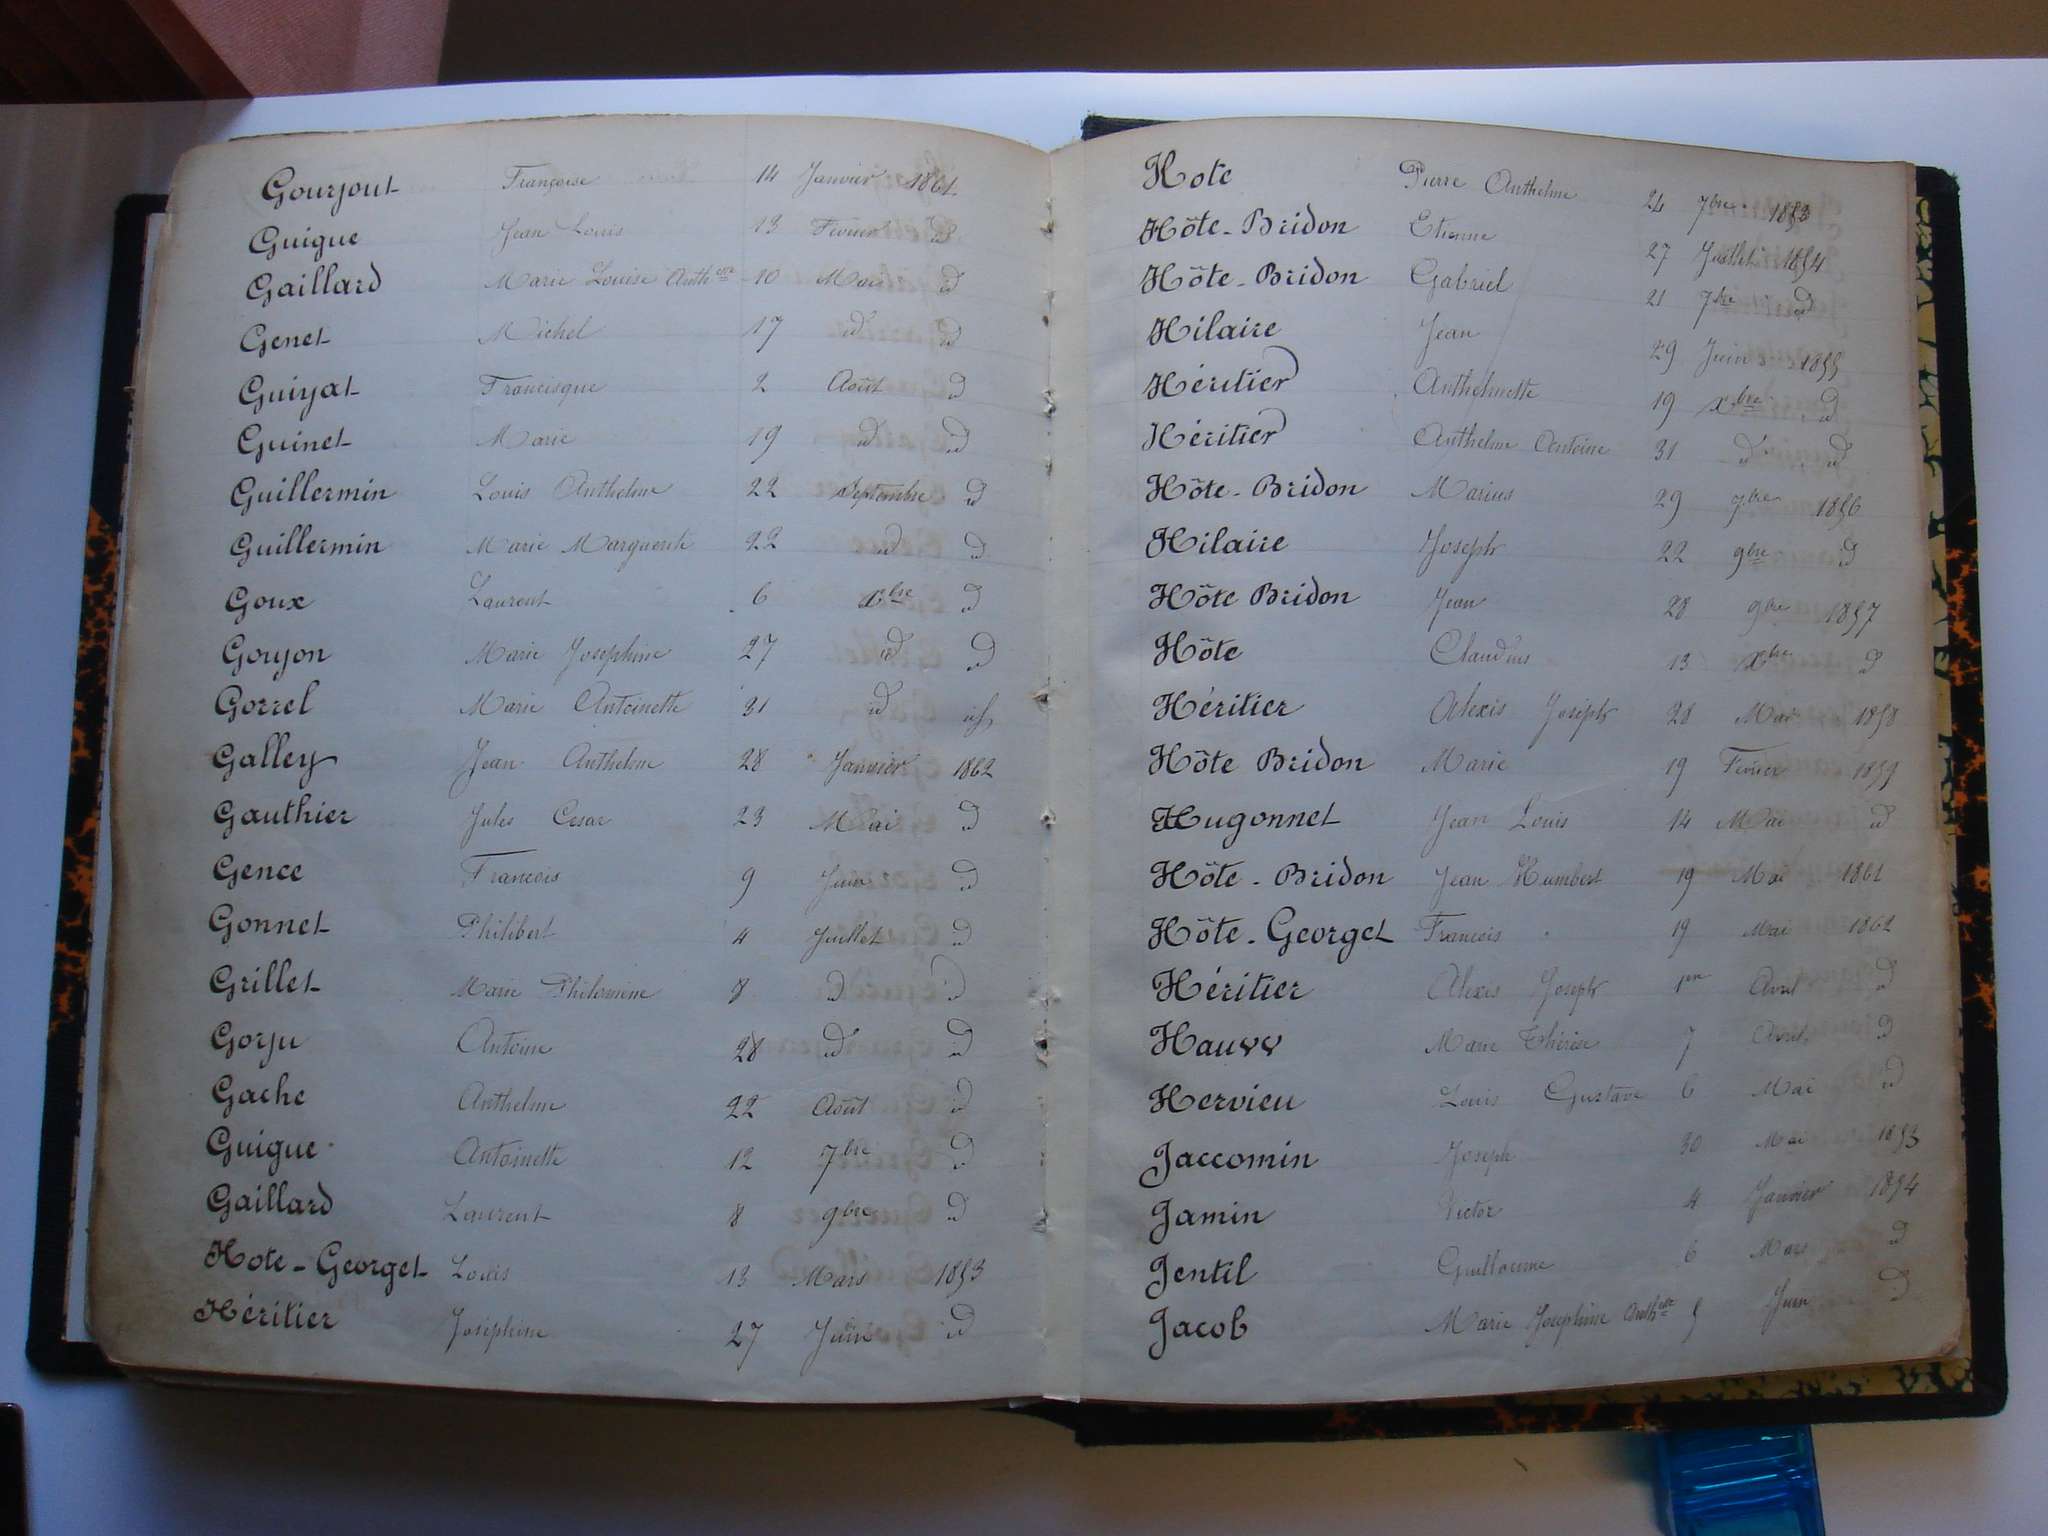 Gourjout Françoise 14 Janvier 1861
Guigue Jean Louis 13 Février id
Gaillard Marie Louise Anth.elte 10 Mai id
Genet Michel 17 id id
Guiyat Francisque 2 Août id
Guinet Marie 19 id id
Guillermin Louis Anthelme 22 Septembre id
Guillermin Marie Marguerite 22 id id
Goux Laurent 6 xbre id
Goujon Marie Josephine 27 id id
Gorrel Marie Antoinette 31 id id
Galley Jean Anthelme 28 Janvier 1862
Gauthier Jules Cesar 23 Mai id
Gence Francois 9 Juin id
Gonnet Philibert 4 Juillet id
Grillet Marie Philomine 8 id id
Gorju Antoine 28 id id
Gache Anthelme 22 Août id
Guigue Antoinette 12 7bre id
Gaillard Laurent 8 9bre id
Hote-Georget Louis 13 Mars 1853
Héritier Joséphine 27 Juin id
Hote Pierre Anthelme 24 7bre 1853
Hôte-Bridon Etienne 27 Juillet 1854
Hôte-Bridon Gabriel 21 7bre id
Hilaire Jean 29 Juin 1855
Héritier Anthelmette 19 xbre id
Héritier Anthelme Antoine 31 id id
Hôte-Bridon Marius 29 7bre 1856
Hilaire Joseph 22 9bre id
Hôte Bridon Jean 28 9bre 1857
Hôte Claudius 13 xbre id
Héritier Alexis Joseph 28 Mai 1858
Hôte Bridon Marie 19 Février 1859
Hugonnet Jean Louis 14 Mai id
Hôte-Bridon Jean Humbert 19 Mai 1861
Hôte-Georget Francois 19 Mai 1862
Héritier Alexis Joseph 1er Avril id
Hauvv Marie Thérèse 7 Avril id
Hervieu Louis Gustave 6 Mai id
Jaccomin Joseph 30 Mai 1853
Jamin Victor 4 Janvier 1854
Jentil Guillaume 6 Mars id
Jacob Marie Josephine Anth.elte 5 Juin id